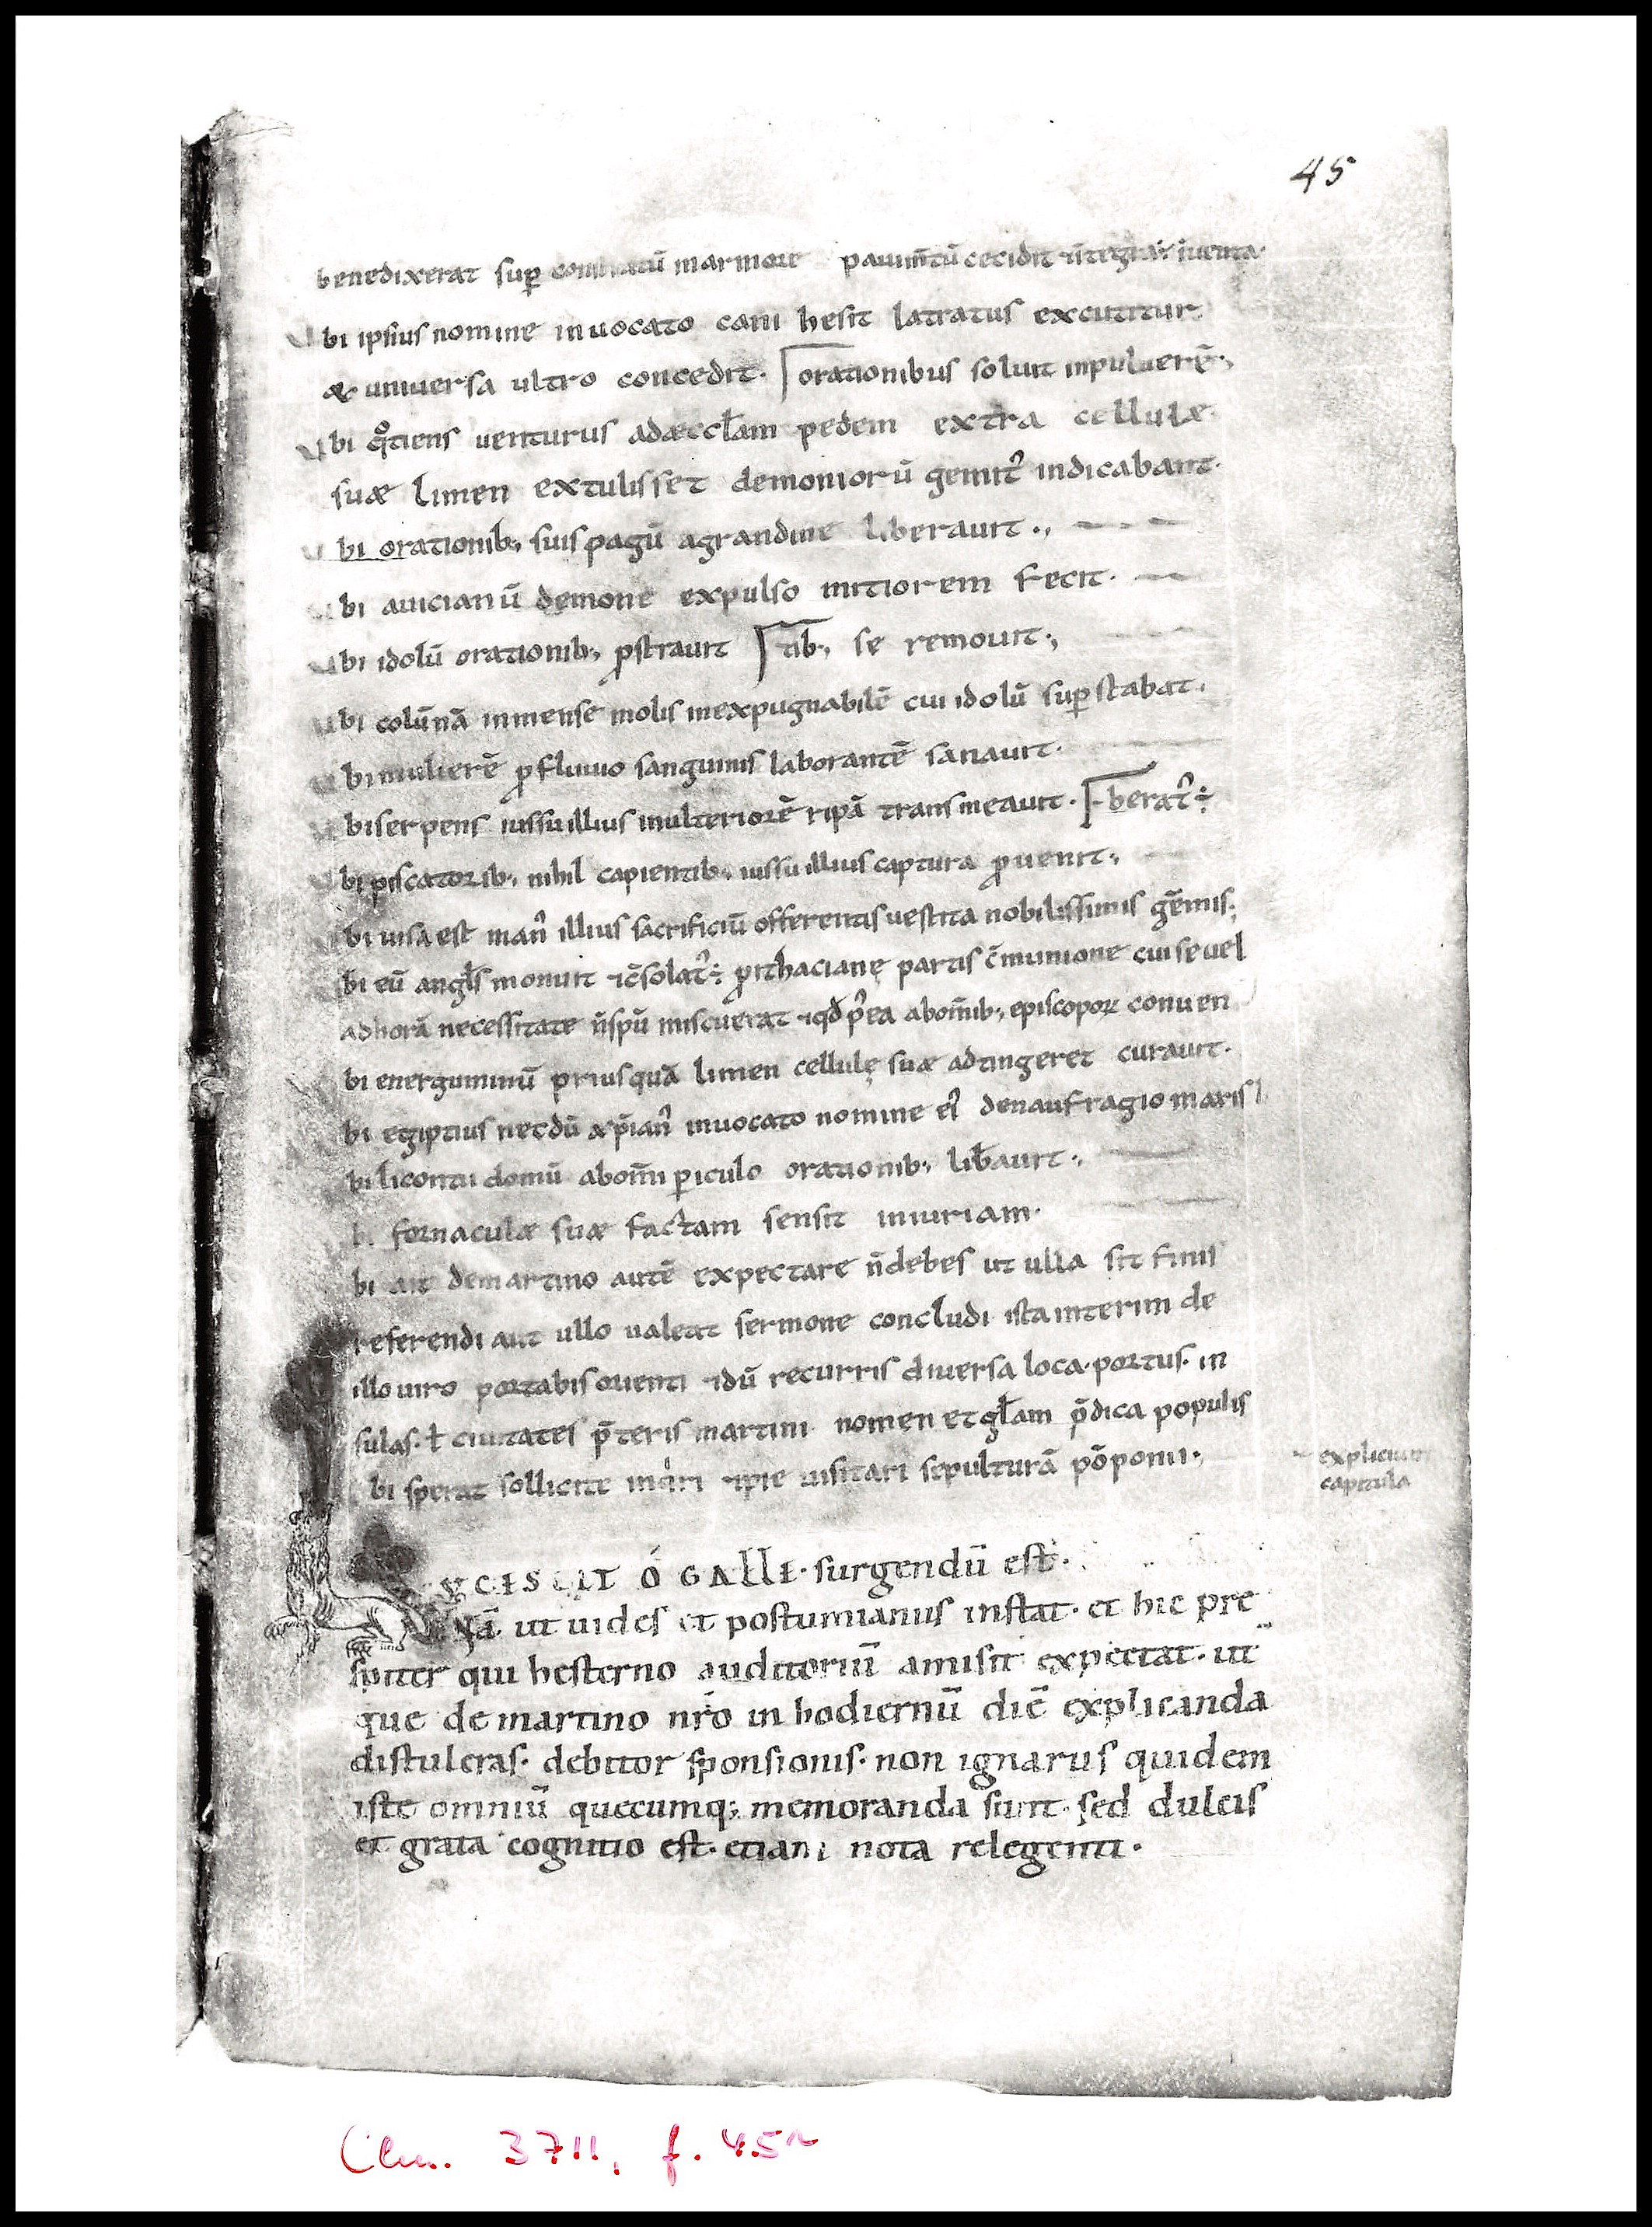 45
benedixerat sup̱ marmore pauim̄tū cecidit ⁊ īntegra ÷ inuenta·
Ubi ipsius nomine inuocato cani hesit latratus excutitur
& uniuersa ultro concedit· orationibus soluit inpuluerē·,
Ubi qͦtiens uenturus adæccl̄am pedem extra cellulæ
suæ limen extulisset demoniorū gemit᾽ indicabant·
Ubi orationib·, suis pagū agrandine liberauit·,
Ubi auicianū demone expulso mitiorem fecit·
Ubi idolū orationib·, ꝓstrauit tib·, se remouit·,
Ubi colūnā inmense molis inexpugnabilē cui idolū sup̱stabat·
Ubi mulierē ꝓfluuio sanguinis laborantē sanauit·
Ubi serpens iussu illius inulteriorē ripā transmeauit· berat᾽ ÷
Ubi piscatorib·, nihil capientib·, iussu illius captura ꝓuenit·,
Ubi uisa est man᾽ illius sacrificiū offerentis uestita nobilissimis gēmis·,
Ubi eū angl̄s monuit ⁊ c̄solat᾽ ÷ ꝓ ithacianę partis c̄munione cui se uel
adhorā necessitate n̄ spū miscuerat ⁊ qd̄ p᾽ea abom̄ib·, episcopoꝝ conuen
Ubi energuminū priusquā limen cellulę suæ adtingeret curauit·
Ubi egiptius necdū xp̄ian᾽ inuocato nomine ei᾽ denaufragio maris l
Ubi licontii domū abom̄i p̱iculo orationib·, lib̄auit·,
Ubi fornaculæ suæ factam sensit iniuriam·
Ubi ait demartino autē expectare n̄ debes ut ulla sit finis
referendi aut ullo ualeat sermone concludi ista interim de
illo uiro portabis ouenti ⁊ dū recurris diuersa loca· portus· in
sulas· ł ciuitates p̄teris martini nomen et gl̄am p̄dica populis
Ubi sperat sollicite ⁊ pie uisitari sepulturā pōponii·,
expliciunt
capitula
LUCISCIT O GALLE· surgendū est·
Nā ut uides et postumianus instat· et hic pre
sbiter qui hesterno auditoriū amisit expectat· ut
que de martino nr̄o in hodiernū diē explicanda
distuleras· debitor sponsionis· non ignarus quidem
iste omniū quecumq; memoranda sunt· sed dulcis
et grata cognitio est· etiam nota relegenti·
Clm. 3711, f. 45r